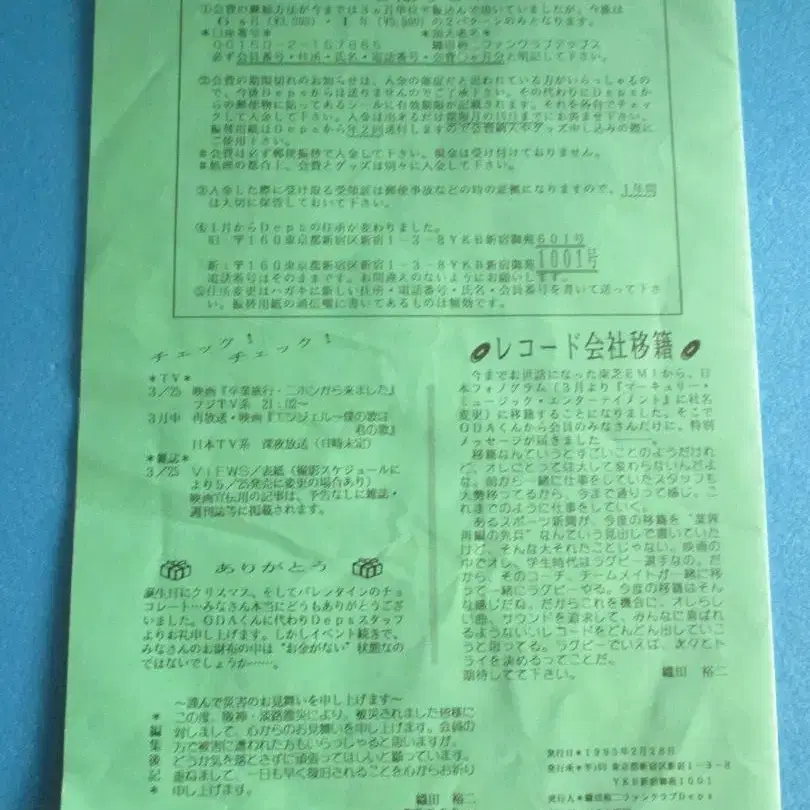 ①会費の継続方法が今までは3ヵ月単位で振込んで頂いていましたが、今後は
6ヵ月(¥3,000)・1年(¥5,500)の2パターンのみとなります。
*口座番号* *加入者名*
00150-2-167665 織田裕二ファンクラブデップス
必ず会員番号・住所・氏名・電話番号・会費○ヵ月分と明記して下さい。
②会費の期限切れのお知らせは、入会の強症だと思われている方がいらっしゃるの
で、今後Depsからは送りませんのでご了承下さい。その代わりにDepsか
らの郵便物に貼ってあるシールに有効期限が記載されます。それを各自でチェッ
クして入金して下さい。入金は出来るだけ期限月の15日までにお済ませ下さい。
振替用紙はDepsから年2回送付しますので会費納入やグッズ申し込みの際に
ご使用下さい。
*会費は必ず郵便振替で入金して下さい。現金は受け付けておりません。
*処理の都合上、会費とグッズは別々に入金して下さい。
③入金した際に受け取る受領証は郵便事故などの時の証拠になりますので、1年間
は大切に保管しておいて下さい。
④1月からDepsの住所が変わりました。
旧:〒160東京都新宿区新宿1-3-8YKB新宿御苑601号
新:〒160東京都新宿区新宿1-3-8YKB新宿御苑1001号
電話番号はそのままです。お間違えのないようにお願いします。
⑤住所変更はハガキに新しい住所・電話番号・氏名・会員番号を書いて送って下さ
い。振替用紙の通信欄に書いてあるものは無効です。
チェック!チェック!
*TV*
3/25 映画『卒業旅行・ニホンから来ました』
フジTV系 21:02~
3月中 再放送・映画『エンジェル-僕の歌は
君の歌』
日本TV系 深夜放送(日時未定)
*雑誌*
3/25 VIEWS/表紙(撮影スケジュールに
より5/25発売に変更の場合あり)
映画宣伝用の記事は、予告なしに雑誌・
週刊誌等に掲載されます。
ありがとう
誕生日にクリスマス、そしてバレンタインのチョ
コレート…みなさん本当にどうもありがとうござ
いました。ODAくんに代わりDepsスタッフ
よりお礼申し上げます。しかしイベント続きで、
みなさんのお財布の中は“お金がない”状態なの
ではないでしょうか……。
レコード会社移籍
今までお世話になった東芝EMIから、日
本フォノグラム(3月より『マーキュリー・
ミュージック・エンターテイメント』に社名
変更)に移籍することになりました。そこで
ODAくんから会員のみなさんだけに、特別
メッセージが届きました
移籍なんていうとすごいことのようだけれ
ど、オレにとっては大して変わらないんだよ
な。前から一緒に仕事をしていたスタッフも
大勢移ってるから、今まで通りって感じ。これ
までのように仕事をしていく。
あるスポーツ新聞が、今度の移籍を“業界
再編の先兵”なんていう見出しで書いていた
けど、そんな大それたことじゃない。映画の
中でオレ、学生時代はラグビー選手なの。だ
から、そのコーチ、チームメイトが一緒に移
って一緒にラグビーやる。今度の移籍はそん
な感じだね。だからこれを機会に、オレらし
い曲、サウンドを追求して、みんなに喜ばれ
るようないいレコードをどんどん出していこ
うと思ってる。ラグビーでいえば、次々とト
ライを決めるってことだ。
期待してて下さい。
織田 裕二
~謹んで災害のお見舞いを申し上げます~
この度、阪神・淡路震災により、被災されました皆様に
対しまして、心からのお見舞いを申し上げます。会員の
方で被害に遭われた方もいらっしゃると思いますが、
どうか気を落とさずに頑張ってほしいと願っています。
重ねまして、一日も早く復旧されることを心からお祈り
申し上げます。
織田 裕二
*編集後記*
発行日*1995年2月28日
発行所*〒160東京都新宿区新宿1-3-8
YKB新宿御苑1001
発行人*織田裕二ファンクラブDeps